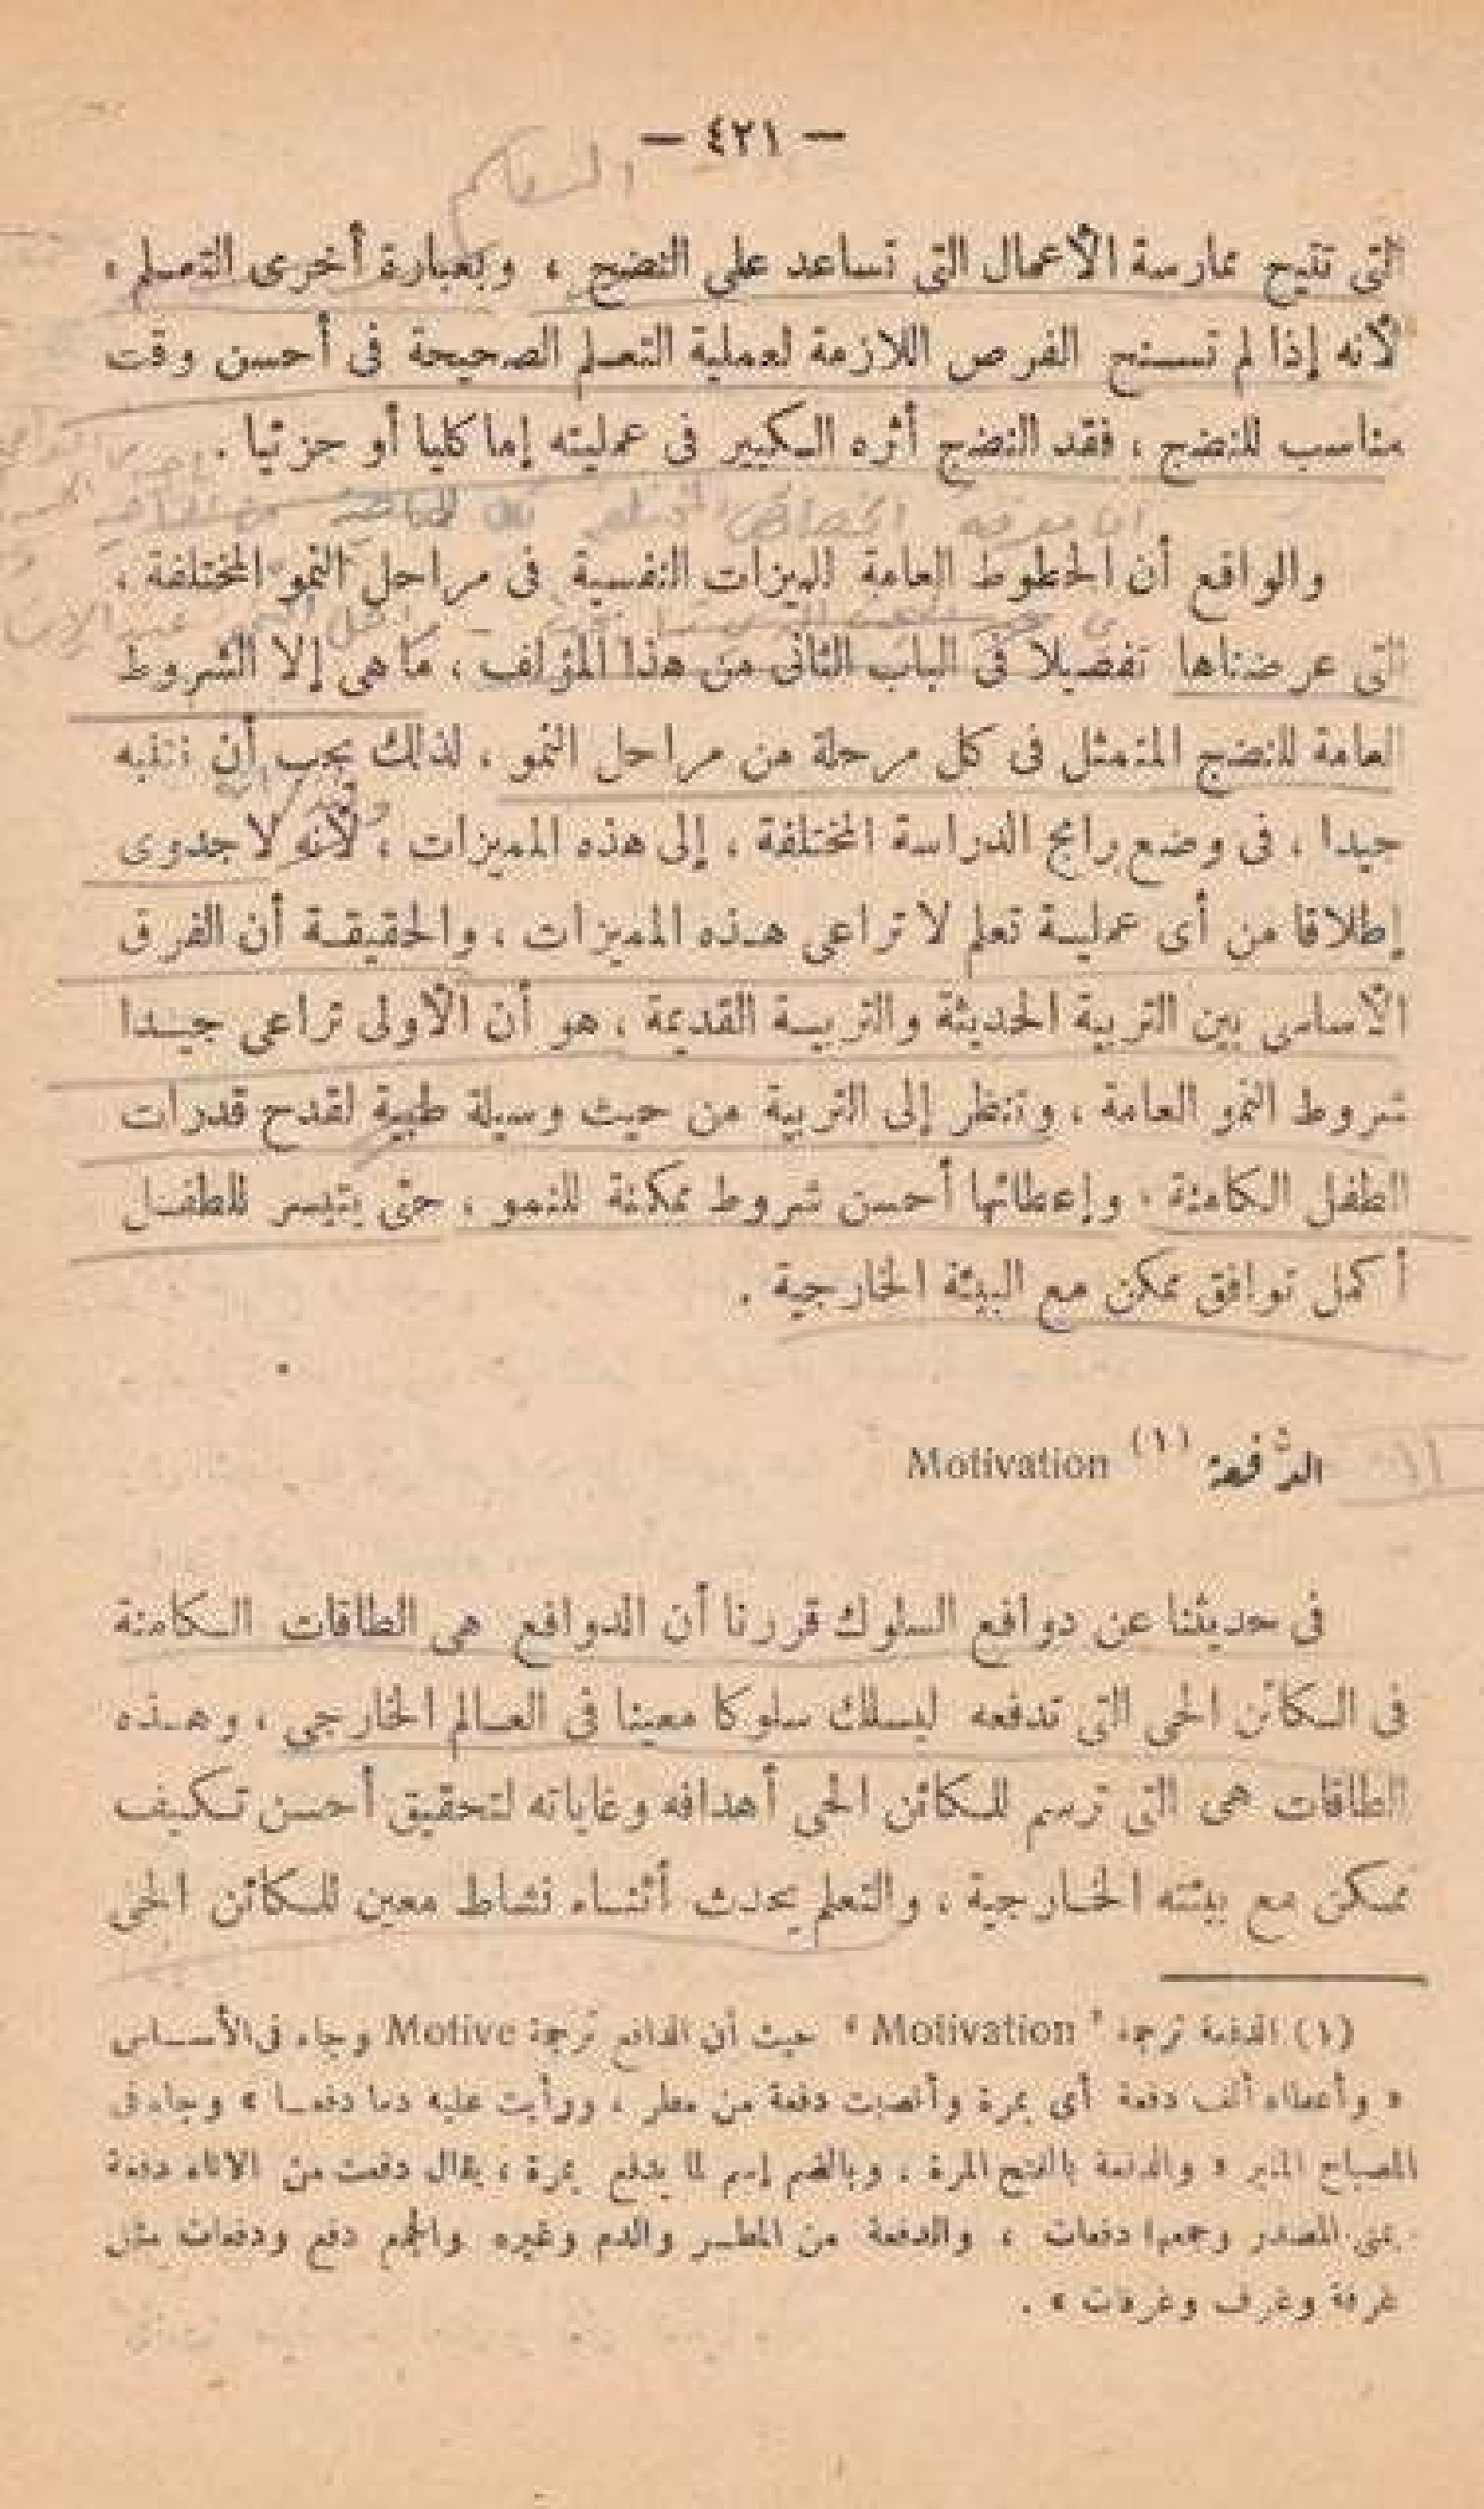 — ٤٢١ —
التعلم
التى تتيح ممارسة الأعمال التى تساعد على النضج ، وبعبارة أخرى التعـلم ،
لأنه إذا لم تسـنح الفرص اللازمة لعملية التعـلم الصحيحة فى أحسن وقت
مناسب للنضج ، فقد النضج أثره الـكبير فى عمليته إما كليا أو جزئيا .
والواقع أن الخطوط العامة للميزات النفسية فى مراحل النمو المختلفة ،
التى عرضناها تفصيلا فى الباب الثانى من هذا المؤلف ، ما هى إلا الشروط
العامة للنضج المتمثل فى كل مرحلة من مراحل النمو ، لذلك يجب أن ننتبه
جيدا ، فى وضع برامج الدراسة المختلفة ، إلى هذه المميزات ، لأنه لا جدوى
إطلاقا من أى عمليـة تعلم لا تراعى هـذه المميزات ، والحقيقـة أن الفرق
الأساسى بين التربية الحديثة والتربيـة القديمة ، هو أن الأولى تراعى جيـدا
شروط النمو العامة ، وتنظر إلى التربية من حيث وسيلة طبية لقدح قدرات
الطفل الـكامنة ، وإعطائها أحسن شروط ممكنة للنمو ، حتى يتيسر للطفـل
أكمل توافق ممكن مع البيئة الخارجية .
الدَّفعة (١) Motivation
فى حديثنا عن دوافع السلوك قررنا أن الدوافع هى الطاقات الـكامنة
فى الـكائن الحى التى تدفعه ليسلك سلوكا معينا فى العـالم الخارجى ، وهـذه
الطاقات هى التى ترسم للـكائن الحى أهدافه وغاياته لتحقيق أحسن تـكيف
ممـكن مع بيئته الخـارجية ، والتعلم يحدث أثنـاء نشاط معين للـكائن الحى
(١) الدفعة ترجمة " Motivation " حيث أن الدافع ترجمة Motive وجاء فى الأسـاس
« وأعطاه ألف دفعة أى بمرة وأنصبت دفعة من مطر ، ورأيت عليه دما دفعـا » وجاء فى
المصباح المنير « والدفعة بالفتح المرة ، وبالضم إسم لما يدفع بمرة ، يقال دفعت من الاناء دفعة
بمعنى المصدر وجمعها دفعات ، والدفعة من المطـر والدم وغيره والجمع دفع ودفعات مثل
غرفة وغرف وغرفات » .